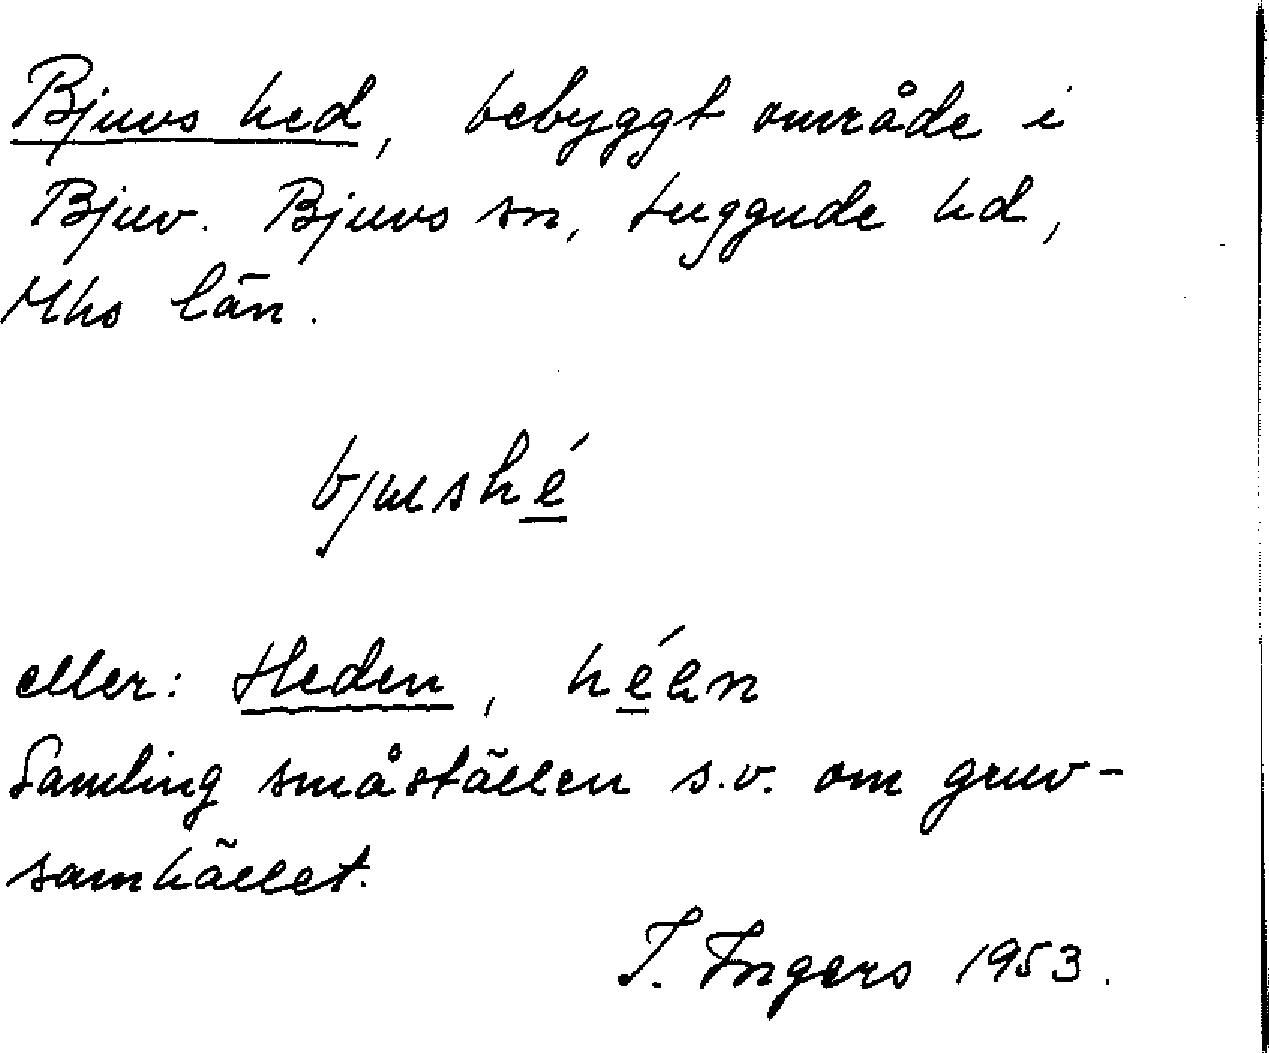 Bjuvs hed, bebyggt område i
Bjuv. Bjuvs sn, Luggude hd,
Mhs län.
bjushé
eller: Heden, héen
Samling småställen s.v. om gruv-
samhället.
I. Ingers 1953.